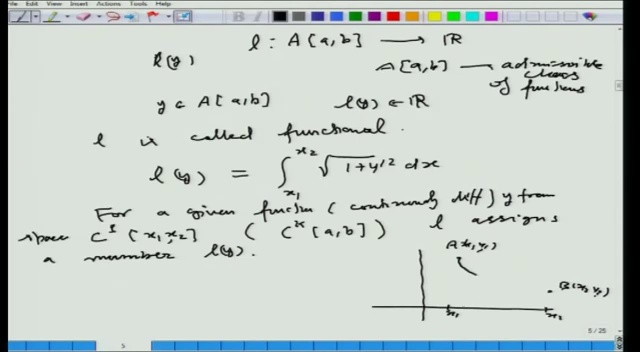 File Edit View Insert Actions Tools Help
l : A[a,b] ⟶ ℝ
l(y)
A[a,b] — admissible class of functions
y ∈ A[a,b] l(y) ∈ ℝ
l is called functional.
l(y) = ∫_{x₁}^{x₂} √(1+y'²) dx
For a given function (continuously diff) y from
space C¹[x₁,x₂] ( Cᵏ[a,b] ) l assigns
a number l(y).
A(x₁,y₁)
B(x₂,y₂)
x₁ x₂
5 / 25
5